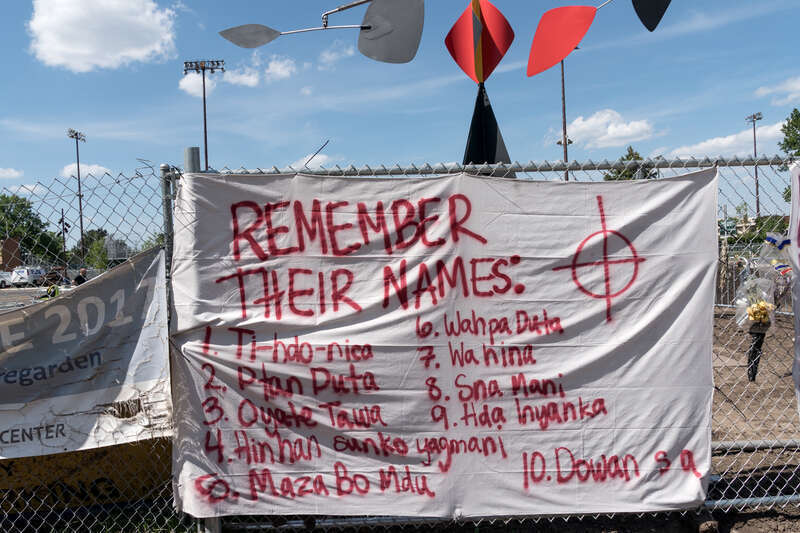 REMEMBER
THEIR NAMES:
1. Ti-hdo-nica
2. Ptan Duta
3. Oyate Tawa
4. Hinhan sunko yagmani
5. Maza Bo Mdu
6. Wahpa Duta
7. Wa hina
8. Sna Mani
9. Hda Inyanka
10. Dowan s a
E 2017
regarden
CENTER